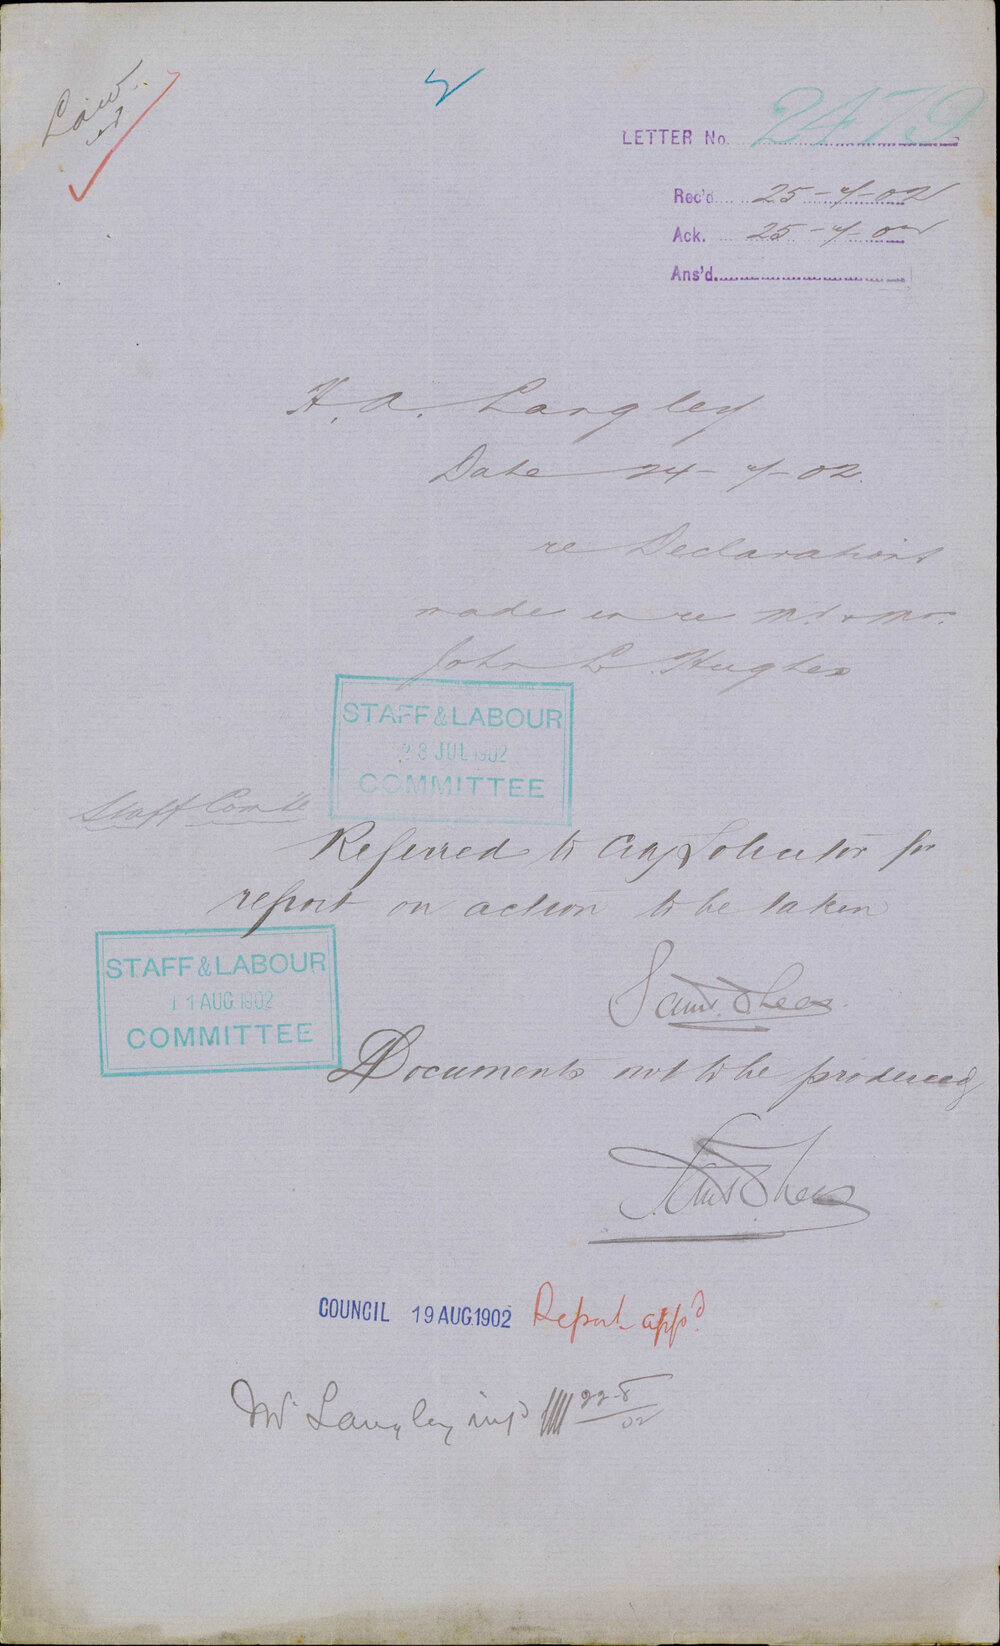 Law
LETTER No. 2479
Rec'd. 25-7-02
Ack. 25-7-02
Ans'd.
H. A. Langley
Date 24-7-02.
re Declarations
made in re Mr. & Mrs.
John L. Hughes
STAFF & LABOUR
28 JUL 1902
COMMITTEE
Staff Comtee
Referred to City Solicitor for
report on action to be taken
STAFF & LABOUR
11 AUG. 1902
COMMITTEE
Saml. Shea
Documents not to be produced
Saml. Shea
COUNCIL 19 AUG. 1902 Report appd
Mr Langley infd 22-8
02